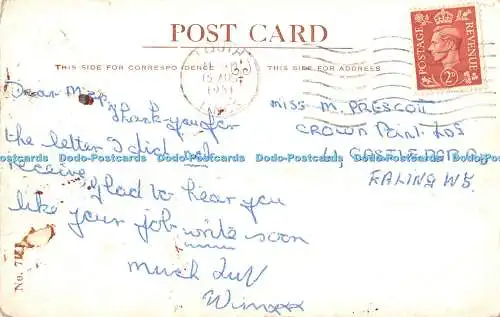 POST CARD
THIS SIDE FOR CORRESPONDENCE
THIS SIDE FOR ADDRESS
POSTAGE REVENUE
2D
1951
Dear
Thank you for
the letter I did not
Receive, glad to hear you
like your job write soon
much luv
Winxxx
MISS M. PRESCOTT
CROWN
11 CASTLEBAR RD
EALING W5.
No. 7
Dodo-Postcards Dodo-Postcards Dodo-Postcards Dodo-Postcards Dodo-Postcards